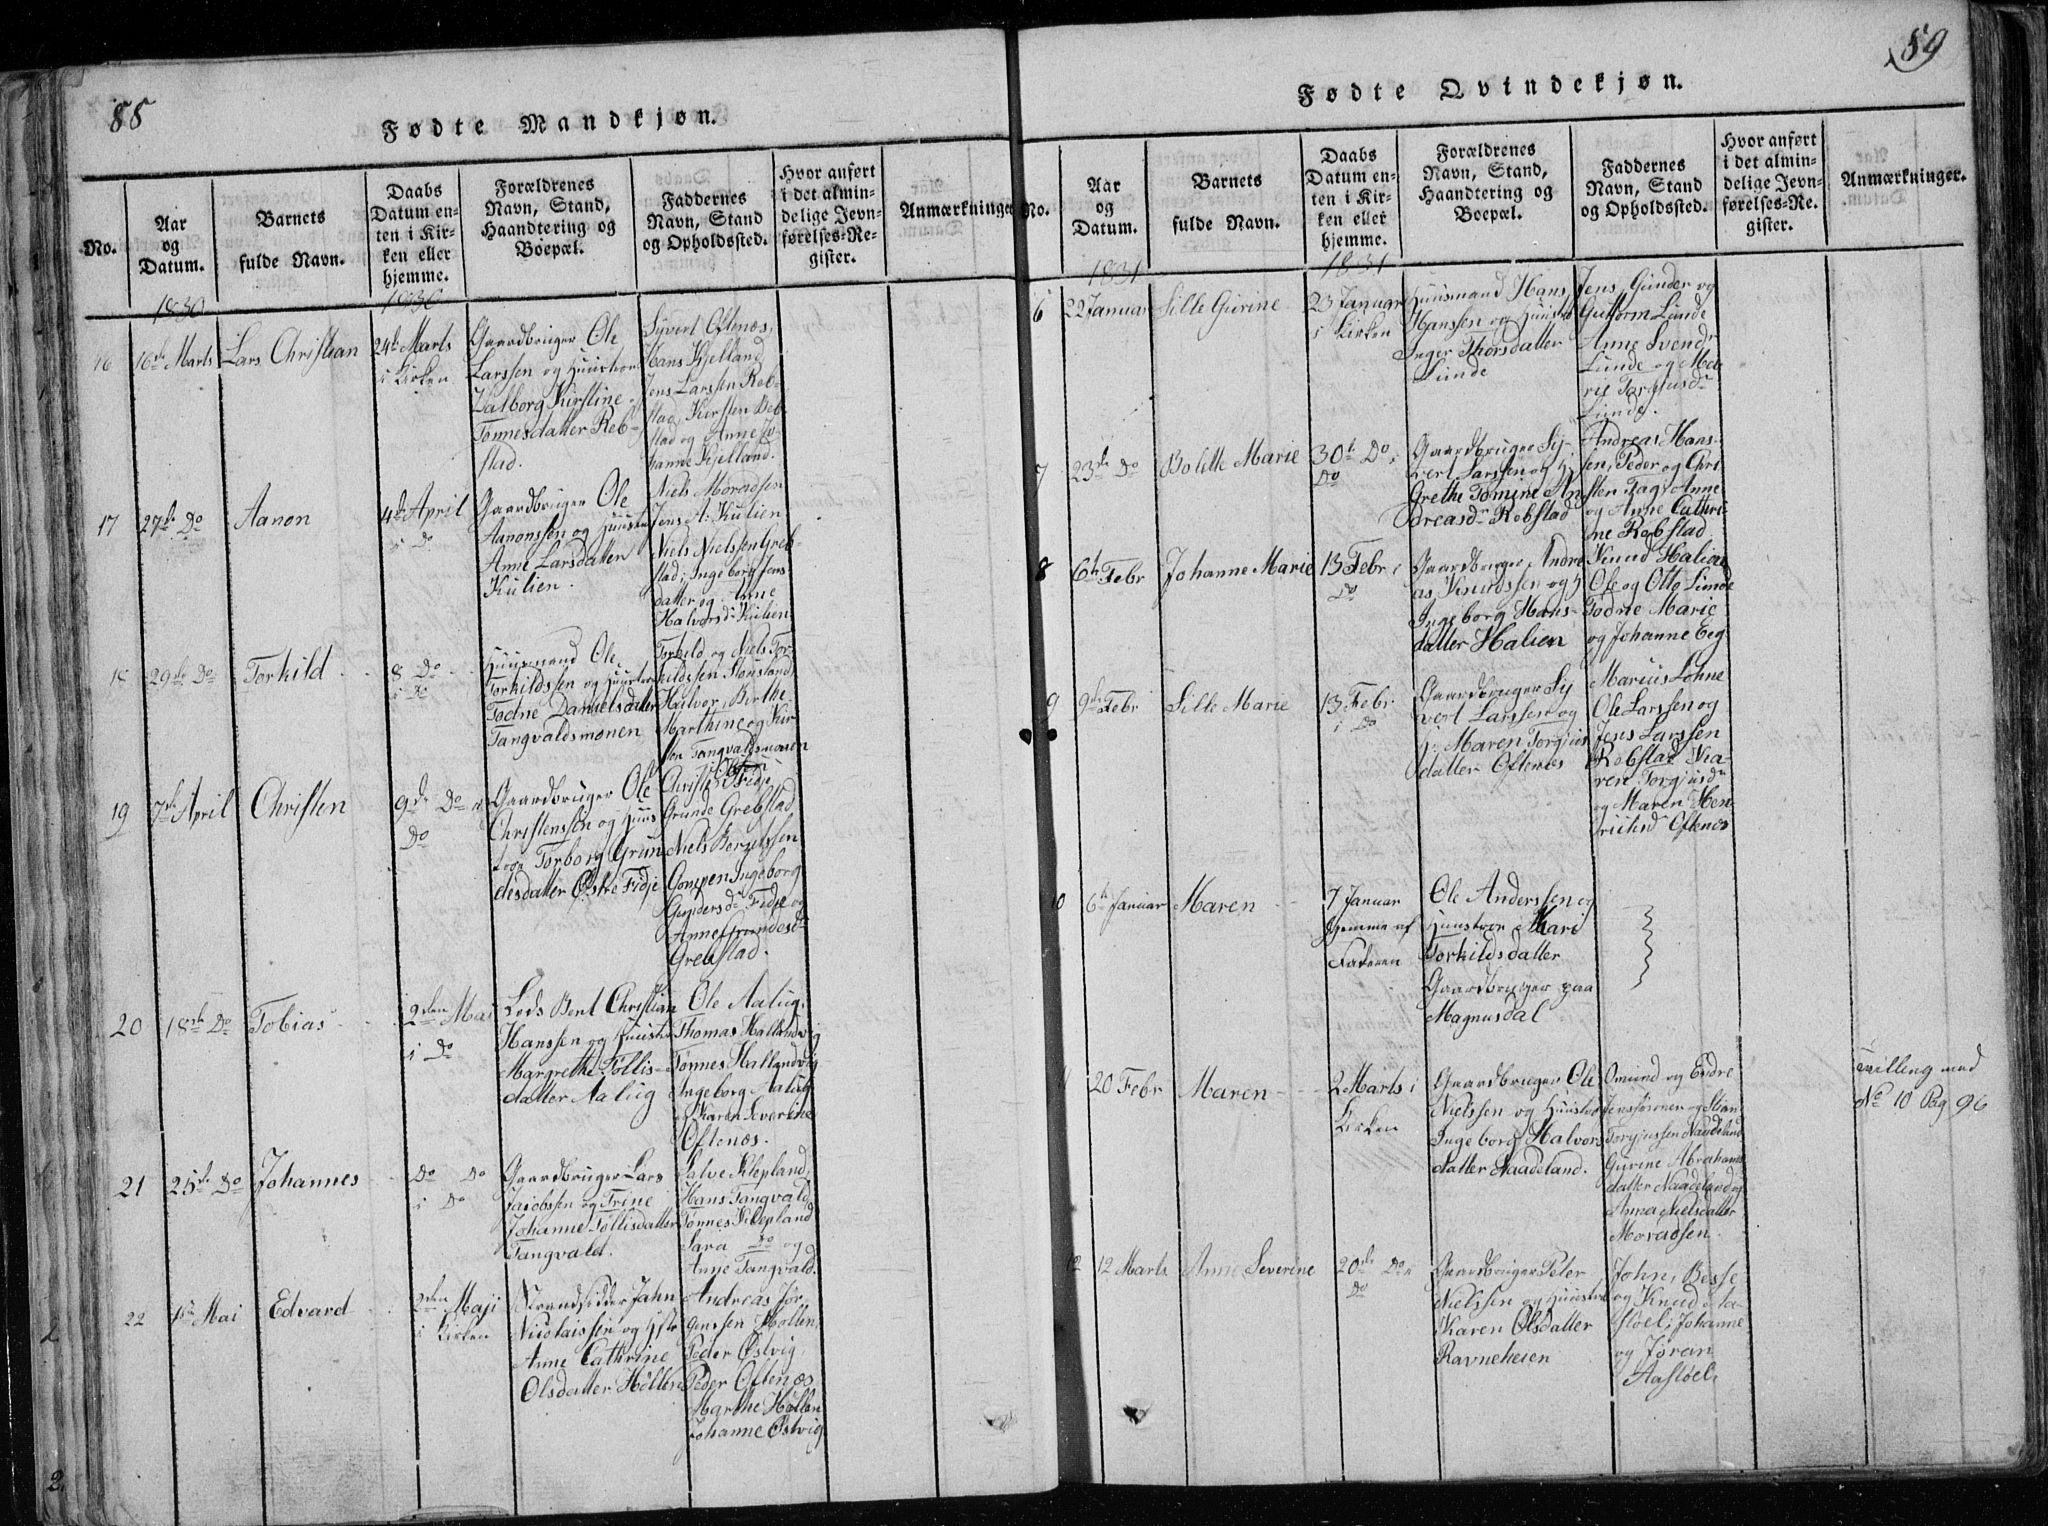 88
Fødte Mandkjøn.
No.
Aar
og
Datum.
Barnets
fulde Navn.
Daabs
Datum en-
ten i Kir-
ken eller
hjemme.
Forældrenes
Navn, Stand,
Haandtering og
Boepæl.
Faddernes
Navn, Stand
og Opholdssted.
Hvor anført
i det almin-
delige Jevn-
førelses-Re-
gister.
Anmærkninger
1830
1830
16
16de Marts
Lars Christian
24de Marts
i Kirken
Gaardbruger Ole
Larssen og Huustroe
Valborg Kirstine
Tønnesdatter Reb-
stad.
Syvert Oftenæs,
Hans Kjelland
Jens Larssen Reb-
stad, Kirsten Reb-
stad og Anne Jo-
hanne Kjelland.
17
27de Do
Aanon
4de April
i Do
Gaardbruger Ole
Aanonssen og Huustr
Anne Larsdatter
Kulien.
Niels Moradsen
Jens A: Kulien
Niels Nielssen Greb-
stad, Ingeborg Jens
datter og Anne
Halvorsdr Kulien
18
29de Do
Torkild
8 Do
i Do
Huusmand Ole
Torkildssen og Huustroe
Todne Danielsdatter
Tangvaldsmonen
Torkild og Niels Tor-
kildssen Stousland,
Halvor, Birthe
Marthine og Kir-
sten Tangvaldsmonen
19
7de April
Christen
9de Do i
Do
Gaardbruger Ole
Christenssen og Huus
troe Torborg Grun
desdatter Østre Fidje
Christen Fidje
Grunde Grebstad
Niels Bergelssen
Gompen Ingeborg
Gundersdr Fidje og
Anne Grundesdr
Grebstad.
20
18de Do
Tobias
2den Mai
i Do
Lods Bent Christian
Hanssen og Huustr
Margrethe Tollis-
datter Aalug
Ole Aalug,
Thomas Hallandvig
Tønnes Hallandvig
Ingeborg Aalug
og Karen Severine
Oftenæs.
21
25de Do
Johannes
Do Do
i Do
Gaardbruger Lars
Jacobssen og Trine
Johanne Tollisdatter
Tangvald.
Salve Klepland,
Hans Tangvald
Tønnes Klepland
Sara Do og
Anne Tangvald.
22
1ste Mai
Edvard
2den Maji
i Kirken
Strandsidder Jahn
Nicolaissen og Hstr
Anne Cathrine
Olsdatter Høllen
Andreas Jør-
genssen Høllen,
Peder Østvig,
Peder Oftenæs
Marthe Høllen
Johanne Østvig
89
Fødte Qvindekjøn.
No.
Aar
og
Datum.
Barnets
fulde Navn.
Daabs
Datum en-
ten i Kir-
ken eller
hjemme.
Forældrenes
Navn, Stand,
Haandtering og
Boepæl.
Faddernes
Navn, Stand
og Opholdssted.
Hvor anført
i det almin-
delige Jevn-
førelses-Re-
gister.
Anmærkninger.
1831
1831
6
22 Januar
Sille Gurine
23 Januar
i Kirken
Huusmand Hans
Hanssen og Huustro
Inger Thorsdatter
Lunde
Jens, Gunder og
Guttorm Lunde
Anne Svendr
Lunde og Ma-
rie Torgiusdr
Lunde.
7
23de Do
Bolette Marie
30te Do i
Do
Gaardbruger Sy-
vert Larssen og H
Grethe Tomine An
dreasdr Rebstad
Andreas Hans-
sen, Peder og Chri
sten Tag, Anne
og Anne Cathri-
ne Rebstad
8
6te Febr
Johanne Marie
13 Febr i
Do
Gaardbruger Andre
as Knudssen og H
Ingeborg Hans-
datter Halien
Knud Halien
Ole og Otto Lunde
Todne Marie
og Johanne Eeg
9
9de Febr
Sille Marie
13 Febr
i Do
Gaardbruger Sy
vert Larssen og
H: Maren Torgius
datter Oftenæs
Marius Lohne
Ole Larssen og
Jens Larssen
Rebstad Ka-
ren Torgiusdr
og Maren Hen-
richsdr Oftenæs
10
6te Januar
Maren
7 Januar
hjemme af
Faderen
Ole Anderssen og
Huustroe Mari
Torkildsdatter
Gaardbruger paa
Magnusdal
20 Febr
Maren
2 Marts i
Kirken
Gaardbruger Ole
Nielssen og Huustroe
Ingeborg Halvors
datter Naadeland.
Omund og Endre
Jenssønner og Stian
Torgjussen Naadeland
Gurine Abrahams
datter Naadeland og
Anna Nielsdatter
Moradsen.
Tvilling med
No 10 Pag 96
12
12 Marts
Anne Severine
20de Do i
Do
Gaardbruger Peter
Nielssen og Huustroe
Karen Olsdatter
Ravneheien
John, Besse
og Knud Aa-
støel, Johanne
og Jøran
Aastøel.
2
2.